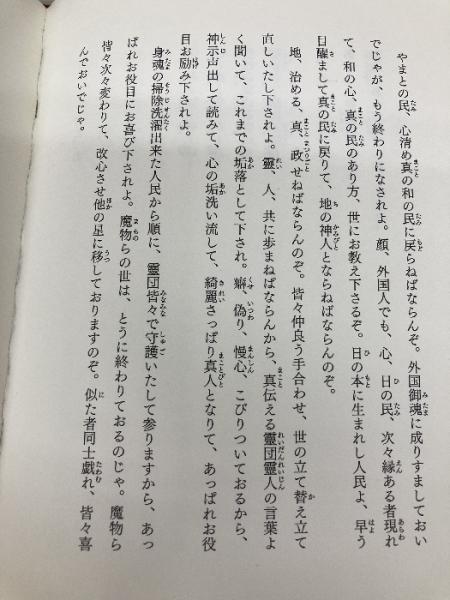 やまとの民、心清め真の和の民に戻らねばならんぞ。外国御魂に成りすましておい
でじゃが、もう終わりになされよ。顔、外国人でも、心、日の民、次々縁ある者現れ
て、和の心、真の民のあり方、世にお教え下さるぞ。日の本に生まれし人民よ、早う
目醒まして真の民に戻りて、地の神人とならねばならんのぞ。
地、治める、真、政せねばならんのぞ。皆々仲良う手合わせ、世の立て替え立て
直しいたし下されよ。靈、人、共に歩まねばならんから、真伝える靈団靈人の言葉よ
く聞いて、これまでの垢落として下され。癖、偽り、慢心、こびりついておるから、
神示声出して読みて、心の垢洗い流して、綺麗さっぱり真人となりて、あっぱれお役
目お励み下されよ。
身魂の掃除洗濯出来た人民から順に、靈団皆々で守護いたして参りますから、あっ
ぱれお役目にお喜び下されよ。魔物らの世は、とうに終わりておるのじゃ。魔物ら
皆々次々変わりて、改心させ他の星に移しておりますのぞ。似た者同士戯れ、皆々喜
んでおいでじゃ。